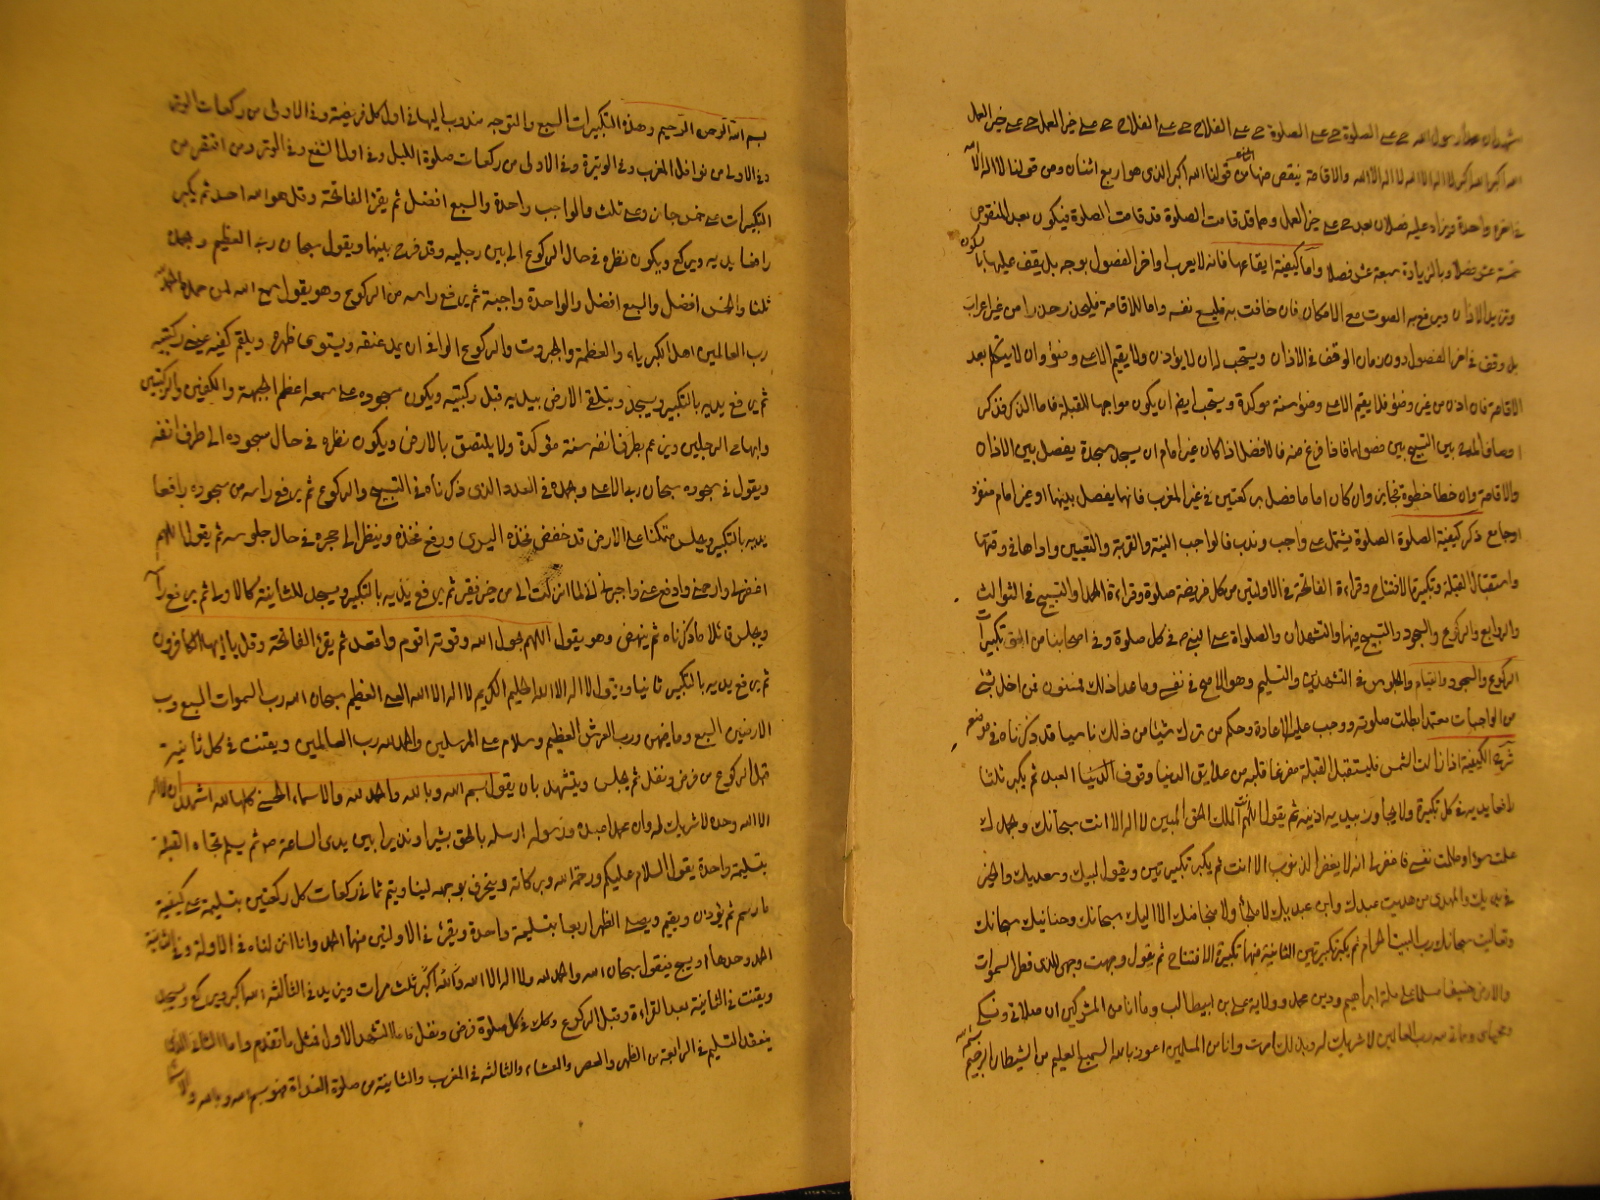 رسول الله حي على الصلوة حي على الصلوة حي على الفلاح حي على الفلاح حي على خير العمل حي على خير العمل
الله اكبر الله اكبر لا اله الا الله لا اله الا الله والاقامة ينقص منها من قولنا الله اكبر الذي هو اربع اثنان ومن قولنا لا اله الا الله
واحدة ويزاد عليه فصلان بعد حي على خير العمل وهما قد قامت الصلوة قد قامت الصلوة فيكون بعد المنقوص
خمسة عشر فصلا وبالزيادة سبعة عشر فصلا واما كيفية ايقاعها فانه لا يعرب اواخر الفصول بوجه بل يقف عليها بالسكون
الاذان ويرفع به الصوت مع الامكان فان خافت به فليسمع نفسه واما للاقامة فليحدر حدرا من غير اعراب
بل وقف في اخر الفصول دون زمان الوقف في الاذان ويستحب ان لا يؤذن ولا يقيم الا على وضوء وان لا يتكلم بعد
الاقامة فان اذن من غير وضوء فلا يقيم الا على وضوء سنة موكدة ويستحب ايضا ان يكون مواجها للقبلة فاما الذكر فذكر
بين التسبيح بين فصولها فاذا فرغ منه فالافضل اذا كان غير امام ان يسجد سجدة يفصل بين الاذان
والاقامة وان خطا خطوة تجاوز وان كان اماما فصل بركعتين في غير المغرب فانها يفصل بينها او غير امام منفرد
او جامع ذكر كيفية الصلوة الصلوة يشتمل على واجب وندب فالواجب النية والقربة والتعيين واداها في وقتها
واستقبال القبلة وتكبيرة الافتتاح وقراءة الفاتحة في الاولتين من كل فريضة صلوة وقراءة الحمد والتسبيح في الثوالث
والروابع والركوع والسجود والتسبيح فيها والتشهدان والصلواة على النبي ص في كل صلوة وفي اصحابنا من الحق تكبيرات
الركوع والسجود والقيام والجلوس في التشهدين والتسليم وهو الاصح في نفسي وما عدا ذلك فمسنون فمن اخل بشئ
من الواجبات معتمدا بطلت صلوته ووجب عليه الاعادة وحكم من ترك شيئا من ذلك ناسيا قد ذكرناه في موضع
شرح الكيفية اذا زالت الشمس فليستقبل القبلة مفرغا قلبه من علايق الدنيا وقوف العبد ثم يكبر ثلثا
رافعا يديه في كل تكبيرة ولا يجاوز بيديه اذنيه ثم يقول اللهم انت الملك الحق المبين لا اله الا انت سبحانك وبحمدك
عملت سوءا وظلمت نفسي فاغفر لي انه لا يغفر الذنوب الا انت ثم يكبر تكبيرتين ويقول لبيك وسعديك والخير
في يديك والمهدي من هديت عبدك وابن عبديك لا ملجا ولا منجا منك الا اليك سبحانك وحنانيك سبحانك
وتعاليت سبحانك رب البيت الحرام ثم يكبر تكبيرتين الثانية منها تكبيرة الافتتاح ثم يقول وجهت وجهي للذي فطر السموات
والارض حنيفا مسلما على ملة ابراهيم ودين محمد وولاية علي بن ابيطالب وما انا من المشركين ان صلاتي ونسكي
ومحياي ومماتي لله رب العالمين لا شريك له وبذلك امرت وانا من المسلمين اعوذ بالله السميع العليم من الشيطان الرجيم
بسم الله الرحمن الرحيم وهذه التكبيرات السبع والتوجه مندوب اليها في اول كل فريضة وفي الاولى من ركعات الوتر
وفي الاولى من نوافل المغرب وفي الوتيرة وفي الاولى من ركعات صلوة الليل وفي اولى الشفع وفي الوتر ومن اقتصر من
التكبيرات على خمس جاز وعلى ثلث والواجب واحدة والسبع افضل ثم يقرا الفاتحة وقل هو الله احد ثم يكبر
رافعا يديه ويركع ويكون نظره في حال الركوع الى بين رجليه وقد فرج بينها ويقول سبحان رب العظيم وبحمده
ثلثا والخمس افضل والسبع افضل والواحدة واجبة ثم يرفع راسه من الركوع وهو يقول سمع الله لمن حمده الحمد لله
رب العالمين اهل الكبرياء والعظمة والجبروت والركوع الوافي ان يمد عنقه ويستوى ظهره ويلقم كفيه عيني ركبتيه
ثم يرفع يديه بالتكبير ويسجد ويتلقى الارض بيديه قبل ركبتيه ويكون سجوده على سبعة اعظم الجبهة والكفين والركبتين
وابهامي الرجلين ويرغم بطرف انفه سنة موكدة ولا يلتصق بالارض ويكون نظره في حال سجوده الى طرف انفه
ويقول في سجوده سبحان رب الاعلى وبحمده في العدد الذي ذكرناه في التسبيح والركوع ثم يرفع راسه من سجوده رافعا
يديه بالتكبير ويجلس متمكنا على الارض قد خفض فخذه اليسرى ورفع فخذه وينظر الى حجره في حال جلوسه ثم يقول اللهم
اغفر لي وارحمني وادفع عني واجبرني اني لما انزلت الي من خير فقير ثم يرفع يديه بالتكبير ويسجد للثانية كالاولى ثم يرفع راسه
ويجلس قائلا ما ذكرناه ثم ينهض وهو يقول اللهم بحول الله وقوته اقوم واقعد ثم يقرا الفاتحة وقل يا ايها الكافرون
ثم يرفع يديه بالتكبير ثانيا ويقول لا اله الا الله الحليم الكريم لا اله الا الله العلي العظيم سبحان الله رب السموات السبع ورب
الارضين السبع وما فيهن ورب العرش العظيم وسلام على المرسلين والحمد لله رب العالمين ويقنت في كل ثانية
قبل الركوع من فرض ونفل ثم يجلس ويتشهد بان يقول بسم الله وبالله والحمد لله والاسماء الحسنى كلها لله اشهد ان لا اله
الا الله وحده لا شريك له وان محمدا عبده ورسوله ارسله بالحق بشيرا ونذيرا بين يدى الساعة ص ثم يسلم تجاه القبلة
بتسليمة واحدة يقول السلام عليكم ورحمة الله وبركاته وينحرف بوجهه يمينا ويتم ثماني ركعات كل ركعتين بتسليمة على كيفية
ما رسم ثم يؤذن ويقيم ويصلي الظهر اربعا بتسليمة واحدة ويقرئ في الاولتين منها الحمد وانا انزلناه في الاولة وفي الثانية
الحمد وحدها او يسبح فيقول سبحان الله والحمد لله ولا اله الا الله والله اكبر ثلث مرات ويزيد في الثالثة الله اكبر ويركع ويسجد
ويقنت في الثانية بعد القراءة وقبل الركوع وكذلك في كل صلوة فرض ونفل فاما التشهد الاول فمثل ما تقدم واما الثاني الذي
ينعقد التسليم في الرابعة من الظهر والعصر والعشاء والثالثة في المغرب والثانية من صلوة الغداة فهو بسم الله وبالله